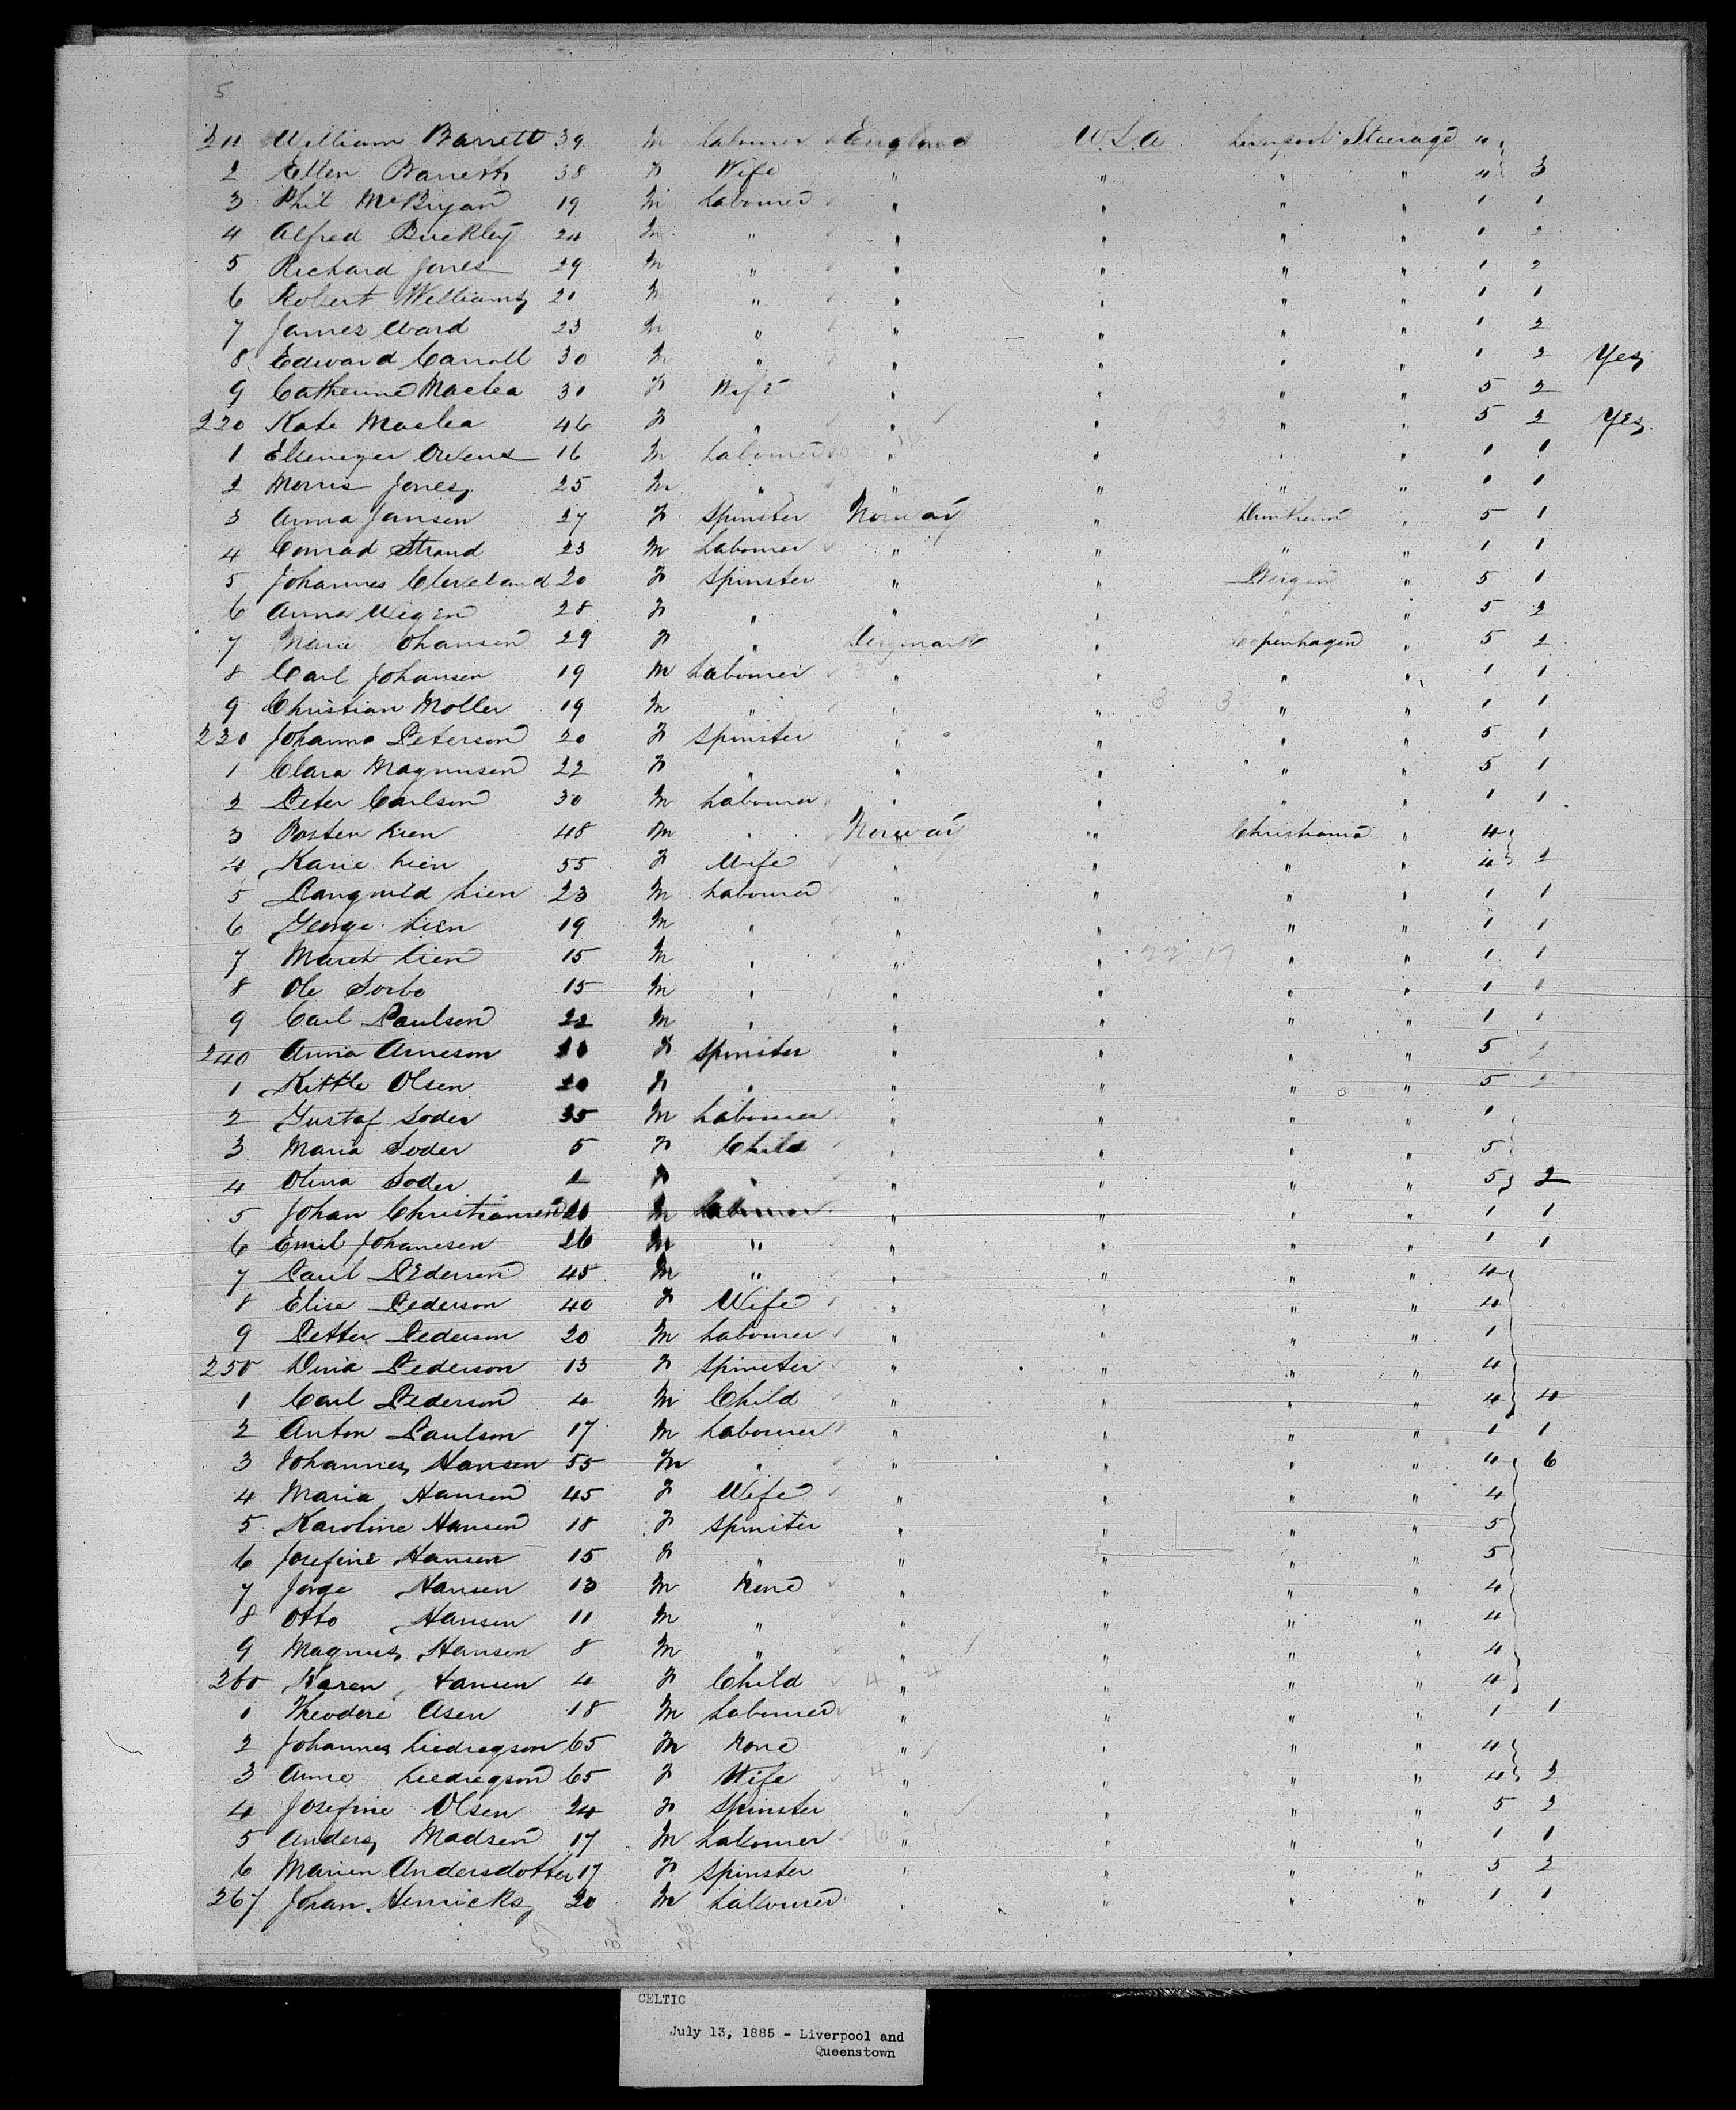 5
211 William Barrett 39 M Labourer England U.S.A Liverpool Steerage 4
2 Ellen Barrett 38 F Wife " " " " 4 3
3 Phil McBryan 19 M Labourer " " " " 1 1
4 Alfred Buckley 24 M " " " " " 1 2
5 Richard Jones 29 M " " " " " 1 2
6 Robert Williams 21 M " " " " " 1 1
7 James Ward 23 M " " " " " 1 2
8 Edward Carroll 30 M " " " " " 1 2 Yes
9 Catherine Maclea 30 F Wife " " " " 5 2
220 Kate Maclea 46 F " " " " " 5 2 Yes
1 Ebenezer Owens 16 M Labourer " " " " 1 1
2 Morris Jones 25 M " " " " " 1 1
3 Anna Jansen 27 F Spinster Norway " Drontheim " 5 1
4 Conrad Strand 23 M Labourer " " " " 1 1
5 Johannes Cleveland 20 F Spinster " " Bergen " 5 1
6 Anna 28 F " " " " " 5 2
7 Marie Johansen 29 F " Denmark " Copenhagen " 5 2
8 Carl Johansen 19 M Labourer " " " " 1 1
9 Christian Moller 19 M " " " " " 1 1
230 Johanna Peterson 20 F Spinster " " " " 5 1
1 Clara Magnusen 22 F " " " " " 5 1
2 Peter Carlson 30 M Labourer " " " " 1 1
3 Lien 48 M " Norway " Christiania " 4
4 Karie Lien 55 F Wife " " " " 4 2
5 Lien 23 M Labourer " " " " 1 1
6 George Lien 19 M " " " " " 1 1
7 Maret Lien 15 M " " " " " 1 1
8 Ole Sorbo 15 M " " " " " 1 1
9 Carl Paulson 22 M " " " " " 1 1
240 Anna Arneson F Spinster " " " " 5
1 Kittle Olsen 20 F " " " " " 5
2 Gustaf Soder 35 M Labourer " " " " 1
3 Maria Soder 5 F Child " " " " 5
4 Olina Soder F " " " " " 5 2
5 Johan Christiansen M Labourer " " " " 1 1
6 Emil Johanesen 26 M " " " " " 1 1
7 Paul Pederson 45 M " " " " " 4
8 Elise Pederson 40 F Wife " " " " 4
9 Petter Pederson 20 M Labourer " " " " 1
250 Dina Pederson 13 F Spinster " " " " 4
1 Carl Pederson 4 M Child " " " " 4 4
2 Anton Paulson 17 M Labourer " " " " 1 1
3 Johannes Hansen 55 M " " " " " 4 6
4 Maria Hansen 45 F Wife " " " " 4
5 Karoline Hansen 18 F Spinster " " " " 5
6 Josefine Hansen 15 F " " " " " 5
7 Jorge Hansen 13 M None " " " " 4
8 Otto Hansen 11 M " " " " " 4
9 Magnus Hansen 8 M " " " " " 4
260 Karen Hansen 4 F Child " " " " 4
1 Theodore Olsen 18 M Labourer " " " " 1 1
2 Johannes 65 M None " " " " 4
3 Anne 65 F Wife " " " " 4 2
4 Josefine Olsen 24 F Spinster " " " " 5 2
5 Anders Madsen 17 M Labourer " " " " 1 1
6 Marien Andersdotter 17 F Spinster " " " " 5 2
267 Johan Henricks 20 M Labourer " " " " 1 1
CELTIC
July 13, 1885 - Liverpool and
Queenstown